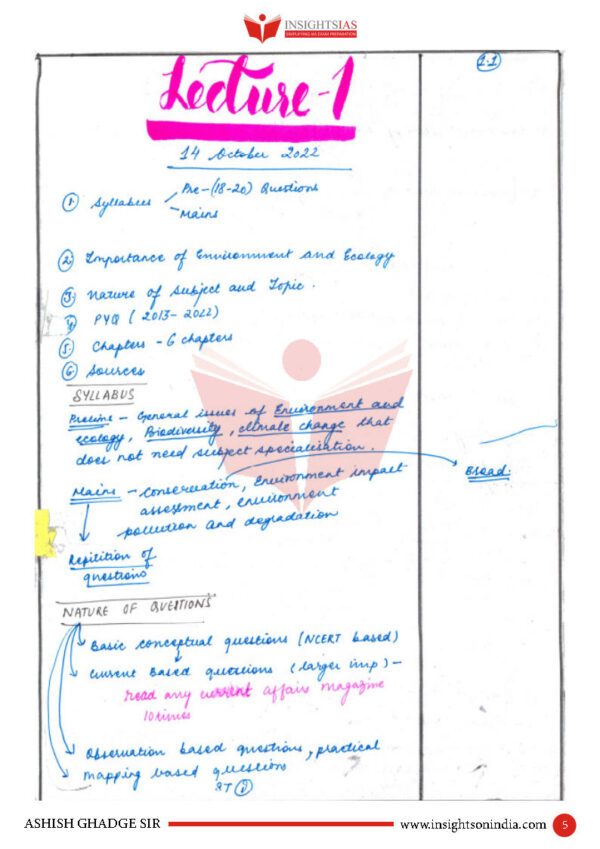 INSIGHTSIAS
SIMPLIFYING IAS EXAM PREPARATION
1.1
Lecture-1
14 October 2022
1. Syllabus - Pre-(18-20) Questions
- Mains
2. Importance of Environment and Ecology
3. Nature of Subject and Topic.
4. PYQ (2013-2022)
5. Chapters - 6 chapters
6. Sources
SYLLABUS
Prelims - General issues of Environment and
ecology, Biodiversity, climate change that
does not need subject specialisation.
Mains - conservation, Environment impact
assessment, environment
pollution and degradation
Broad.
Repitition of
questions
NATURE OF QUESTIONS
Basic conceptual questions (NCERT based)
current based questions (larger imp) -
read any current affairs magazine
10 times
Observation based questions, practical
mapping based questions
ASHISH GHADGE SIR
www.insightsonindia.com
5